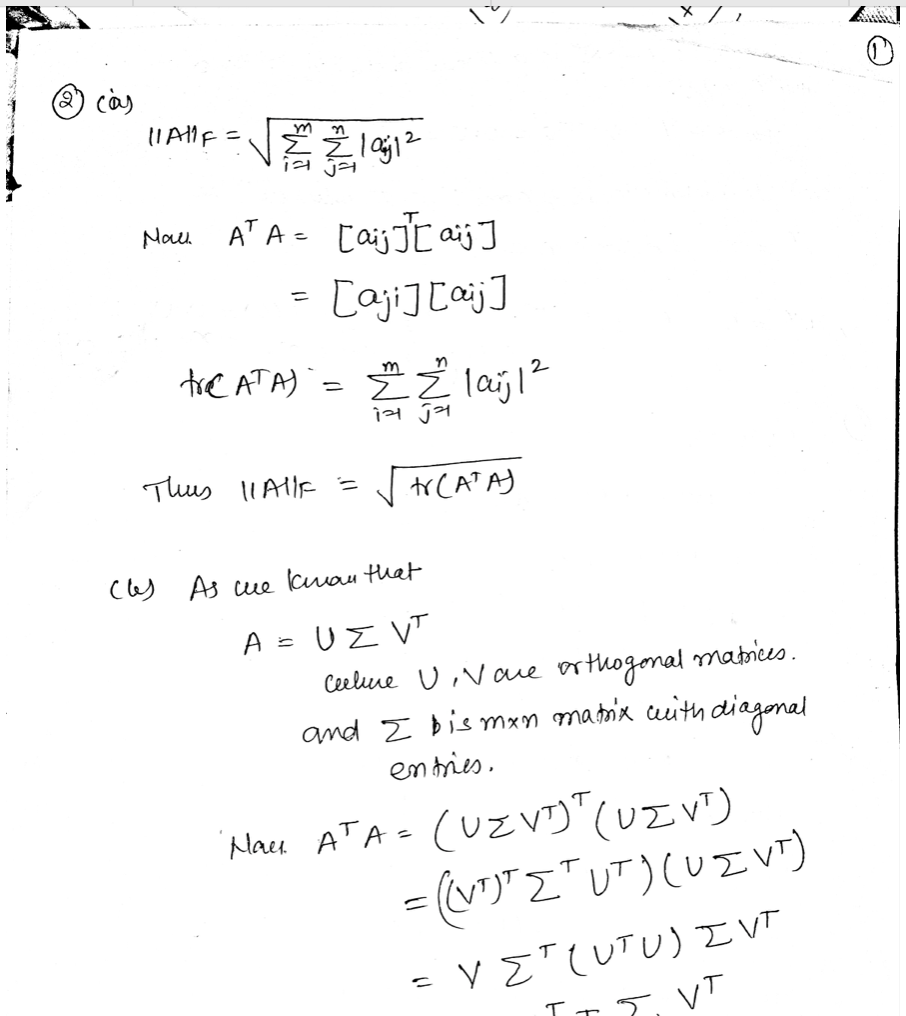 ①
② (a)
||A||F = √ Σ_{i=1}^{m} Σ_{j=1}^{n} |aij|²
Now A^T A = [aij]^T [aij]
= [aji] [aij]
tr(A^T A) = Σ_{i=1}^{m} Σ_{j=1}^{n} |aij|²
Thus ||A||F = √ tr(A^T A)
(b) As we know that
A = U Σ V^T
where U, V are orthogonal matrices.
and Σ is m×n matrix with diagonal
entries.
Now A^T A = (U Σ V^T)^T (U Σ V^T)
= ((V^T)^T Σ^T U^T) (U Σ V^T)
= V Σ^T (U^T U) Σ V^T
Σ V^T